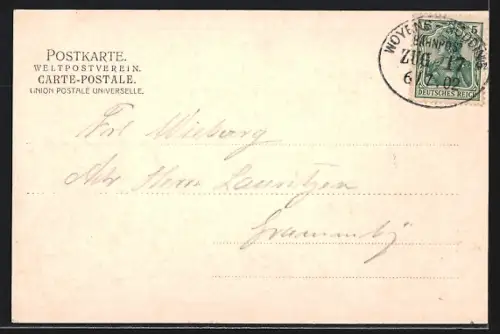 POSTKARTE.
WELTPOSTVEREIN.
CARTE-POSTALE.
UNION POSTALE UNIVERSELLE.
WOYENS
BAHNPOST
ZUG 17
6 7 02
5
DEUTSCHES REICH
Frl Wieborg
Adr Herrn Lauritzen
Gramm